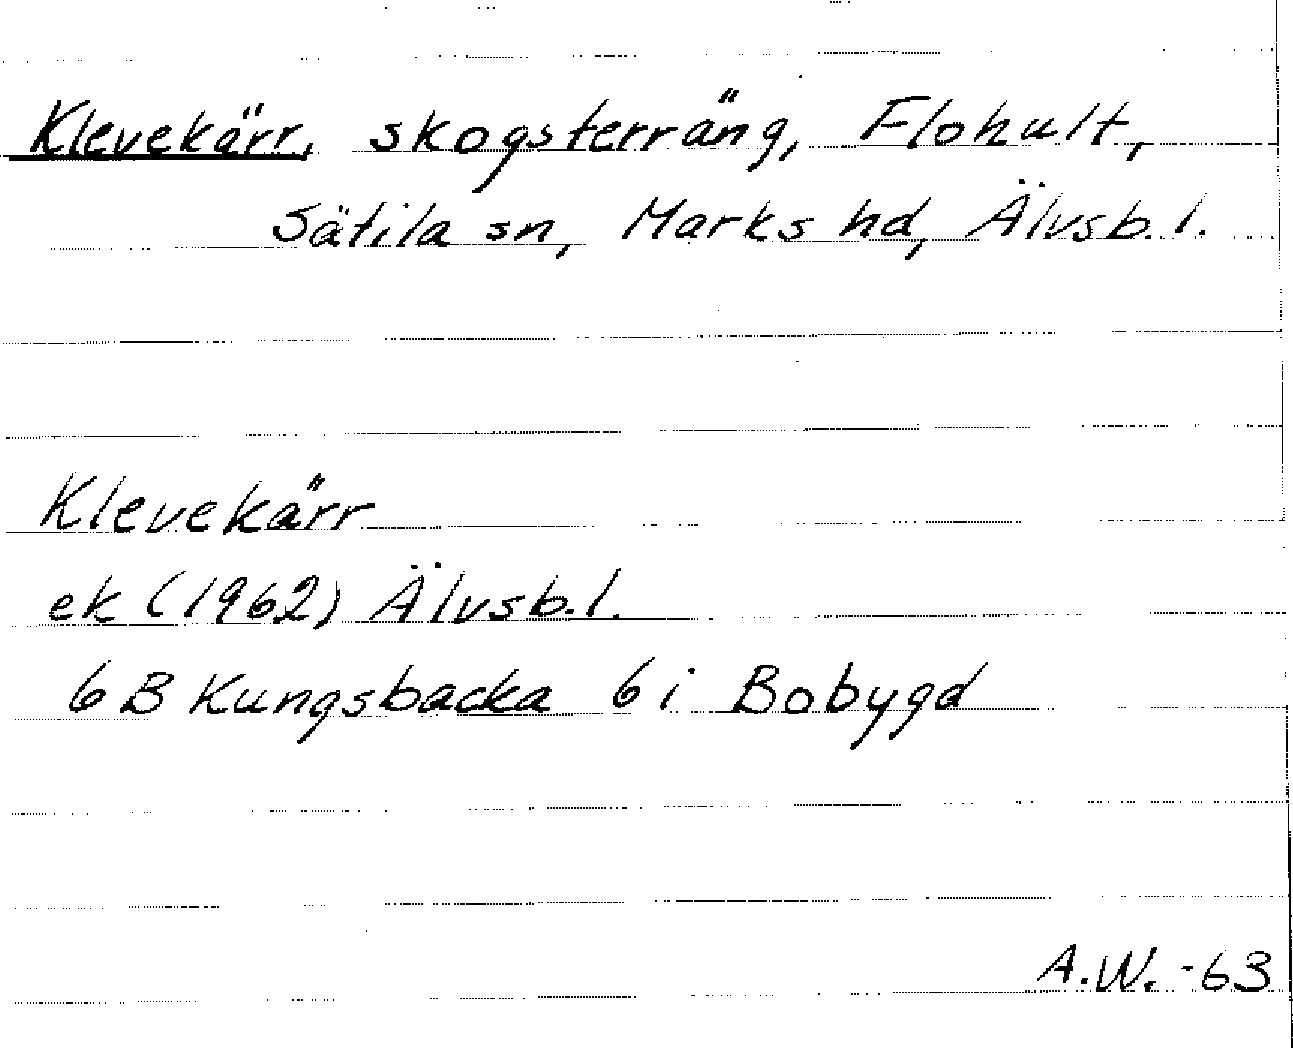 Klevekärr, skogsterräng, Flohult,
Sätila sn, Marks hd, Älvsb. l.
Klevekärr
ek (1962) Älvsb. l.
6 B Kungsbacka 6 i Bobygd
A.W. -63